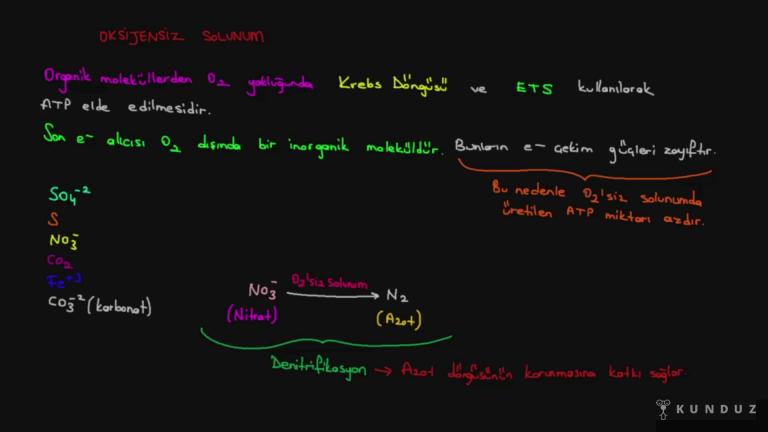 OKSİJENSİZ SOLUNUM
Organik moleküllerden O₂ yokluğunda Krebs Döngüsü ve ETS kullanılarak
ATP elde edilmesidir.
Son e- alıcısı O₂ dışında bir inorganik moleküldür. Bunların e- çekim güçleri zayıftır.
Bu nedenle O₂'siz solunumda
üretilen ATP miktarı azdır.
SO₄⁻²
S
NO₃⁻
CO₂
Fe⁺³
CO₃⁻² (karbonat)
NO₃⁻ O₂'siz solunum → N₂
(Nitrat) (Azot)
Denitrifikasyon → Azot döngüsünün korunmasına katkı sağlar.
KUNDUZ